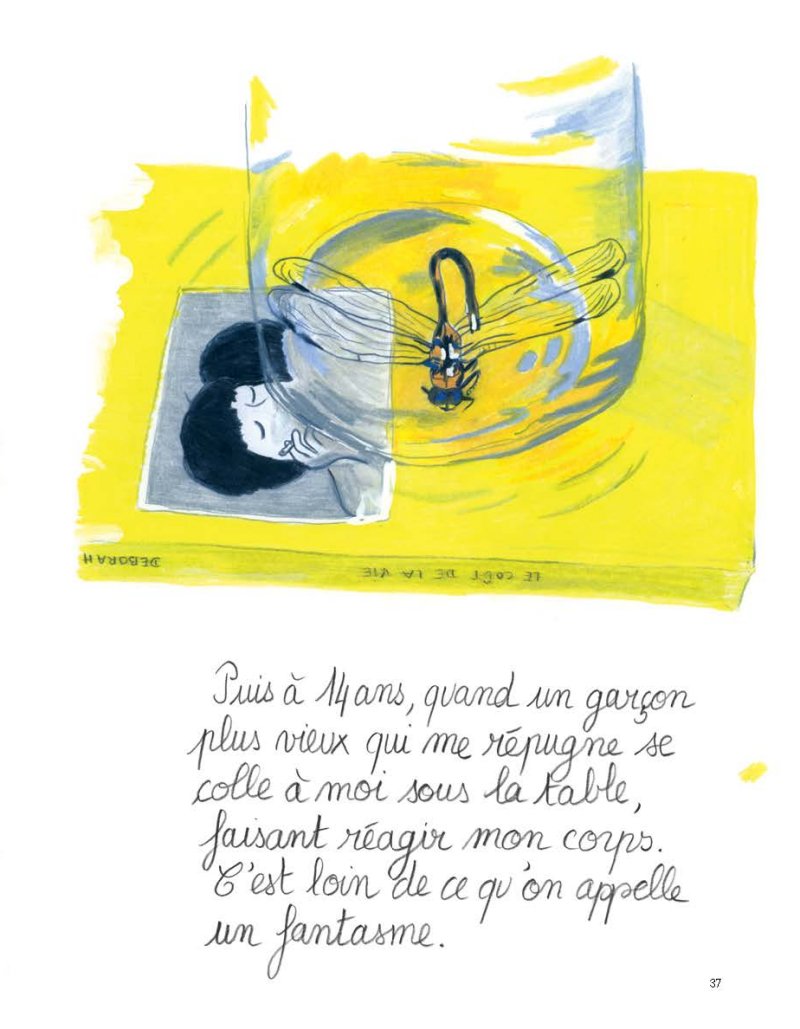 DEBORAH
LE COÛT DE LA VIE
Puis à 14 ans, quand un garçon
plus vieux qui me répugne se
colle à moi sous la table,
faisant réagir mon corps.
C'est loin de ce qu'on appelle
un fantasme.
37